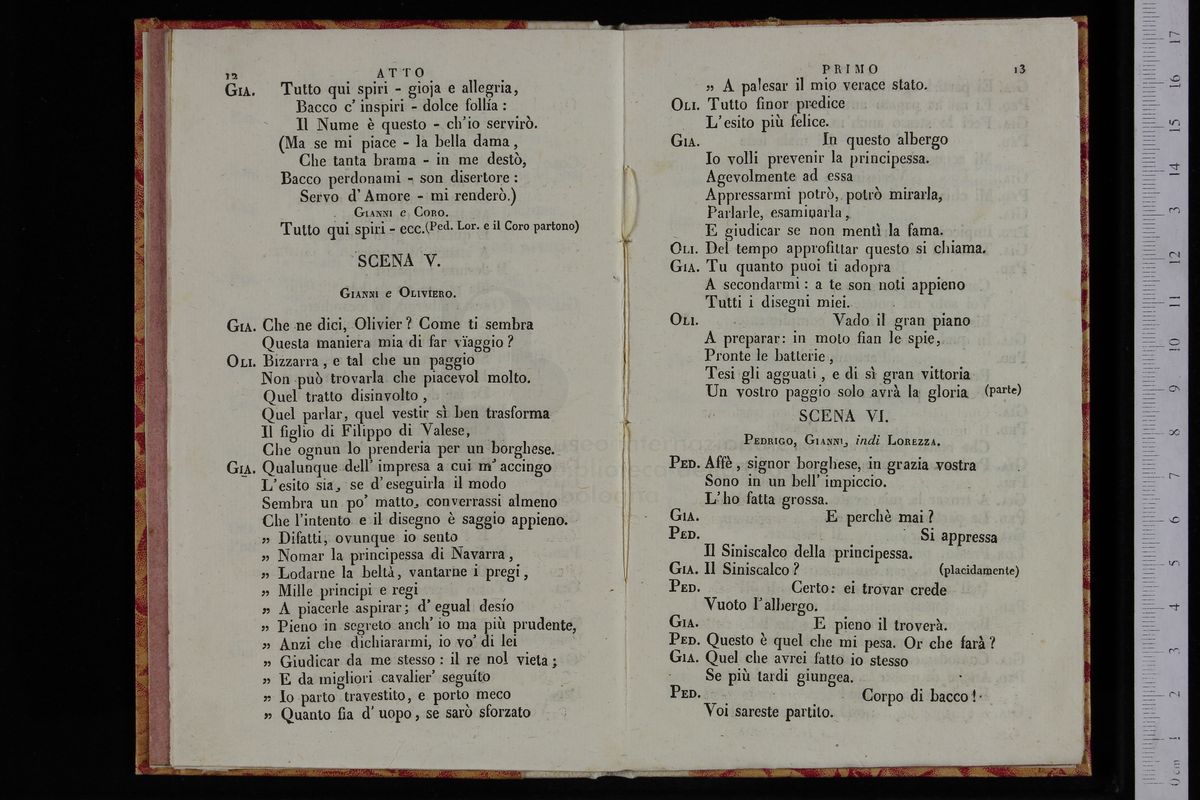 12
ATTO
GIA. Tutto qui spiri - gioja e allegria,
Bacco c' inspiri - dolce follía :
Il Nume è questo - ch'io servirò.
(Ma se mi piace - la bella dama,
Che tanta brama - in me destò,
Bacco perdonami - son disertore :
Servo d'Amore - mi renderò.)
GIANNI e CORO.
Tutto qui spiri - ecc.(Ped. Lor. e il Coro partono)
SCENA V.
GIANNI e OLIVIERO.
GIA. Che ne dici, Olivier? Come ti sembra
Questa maniera mia di far vïaggio?
OLI. Bizzarra, e tal che un paggio
Non può trovarla che piacevol molto.
Quel tratto disinvolto,
Quel parlar, quel vestir sì ben trasforma
Il figlio di Filippo di Valese,
Che ognun lo prenderia per un borghese.
GIA. Qualunque dell' impresa a cui m' accingo
L'esito sia, se d'eseguirla il modo
Sembra un po' matto, converrassi almeno
Che l'intento e il disegno è saggio appieno.
„ Difatti, ovunque io sento
„ Nomar la principessa di Navarra,
„ Lodarne la beltà, vantarne i pregi,
„ Mille principi e regi
„ A piacerle aspirar; d' egual desío
„ Pieno in segreto anch' io ma più prudente,
„ Anzi che dichiararmi, io vo' di lei
„ Giudicar da me stesso : il re nol vieta;
„ E da migliori cavalier' seguíto
„ Io parto travestito, e porto meco
„ Quanto fia d' uopo, se sarò sforzato
PRIMO
13
„ A palesar il mio verace stato.
OLI. Tutto finor predice
L'esito più felice.
GIA. In questo albergo
Io volli prevenir la principessa.
Agevolmente ad essa
Appressarmi potrò, potrò mirarla,
Parlarle, esaminarla,
E giudicar se non mentì la fama.
OLI. Del tempo approfittar questo si chiama.
GIA. Tu quanto puoi ti adopra
A secondarmi : a te son noti appieno
Tutti i disegni miei.
OLI. Vado il gran piano
A preparar: in moto fian le spie,
Pronte le batterie,
Tesi gli agguati, e di sì gran vittoria
Un vostro paggio solo avrà la gloria (parte)
SCENA VI.
PEDRIGO, GIANNI, indi LOREZZA.
PED. Affè, signor borghese, in grazia vostra
Sono in un bell' impiccio.
L'ho fatta grossa.
GIA. E perchè mai?
PED. Si appressa
Il Siniscalco della principessa.
GIA. Il Siniscalco? (placidamente)
PED. Certo: ei trovar crede
Vuoto l'albergo.
GIA. E pieno il troverà.
PED. Questo è quel che mi pesa. Or che farà?
GIA. Quel che avrei fatto io stesso
Se più tardi giungea.
PED. Corpo di bacco!
Voi sareste partito.